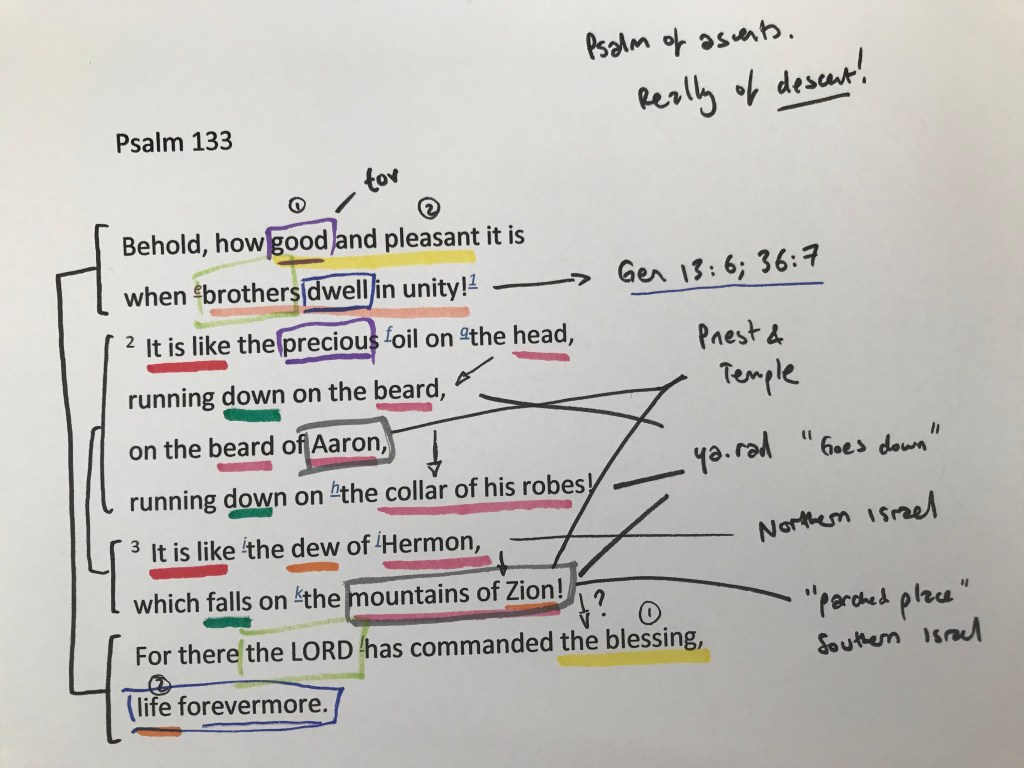 Psalm of ascents.
Really of descent!
Psalm 133
tov
① ②
Behold, how good and pleasant it is
when ᵉbrothers dwell in unity!¹
Gen 13:6; 36:7
² It is like the precious ᶠoil on ᵍthe head,
Priest &
Temple
running down on the beard,
on the beard of Aaron,
ya.rad "Goes down"
running down on ʰthe collar of his robes!
Northern Israel
³ It is like ⁱthe dew of ʲHermon,
which falls on ᵏthe mountains of Zion!
"parched place"
Southern Israel
? ①
For there the LORD has commanded the blessing,
②
life forevermore.